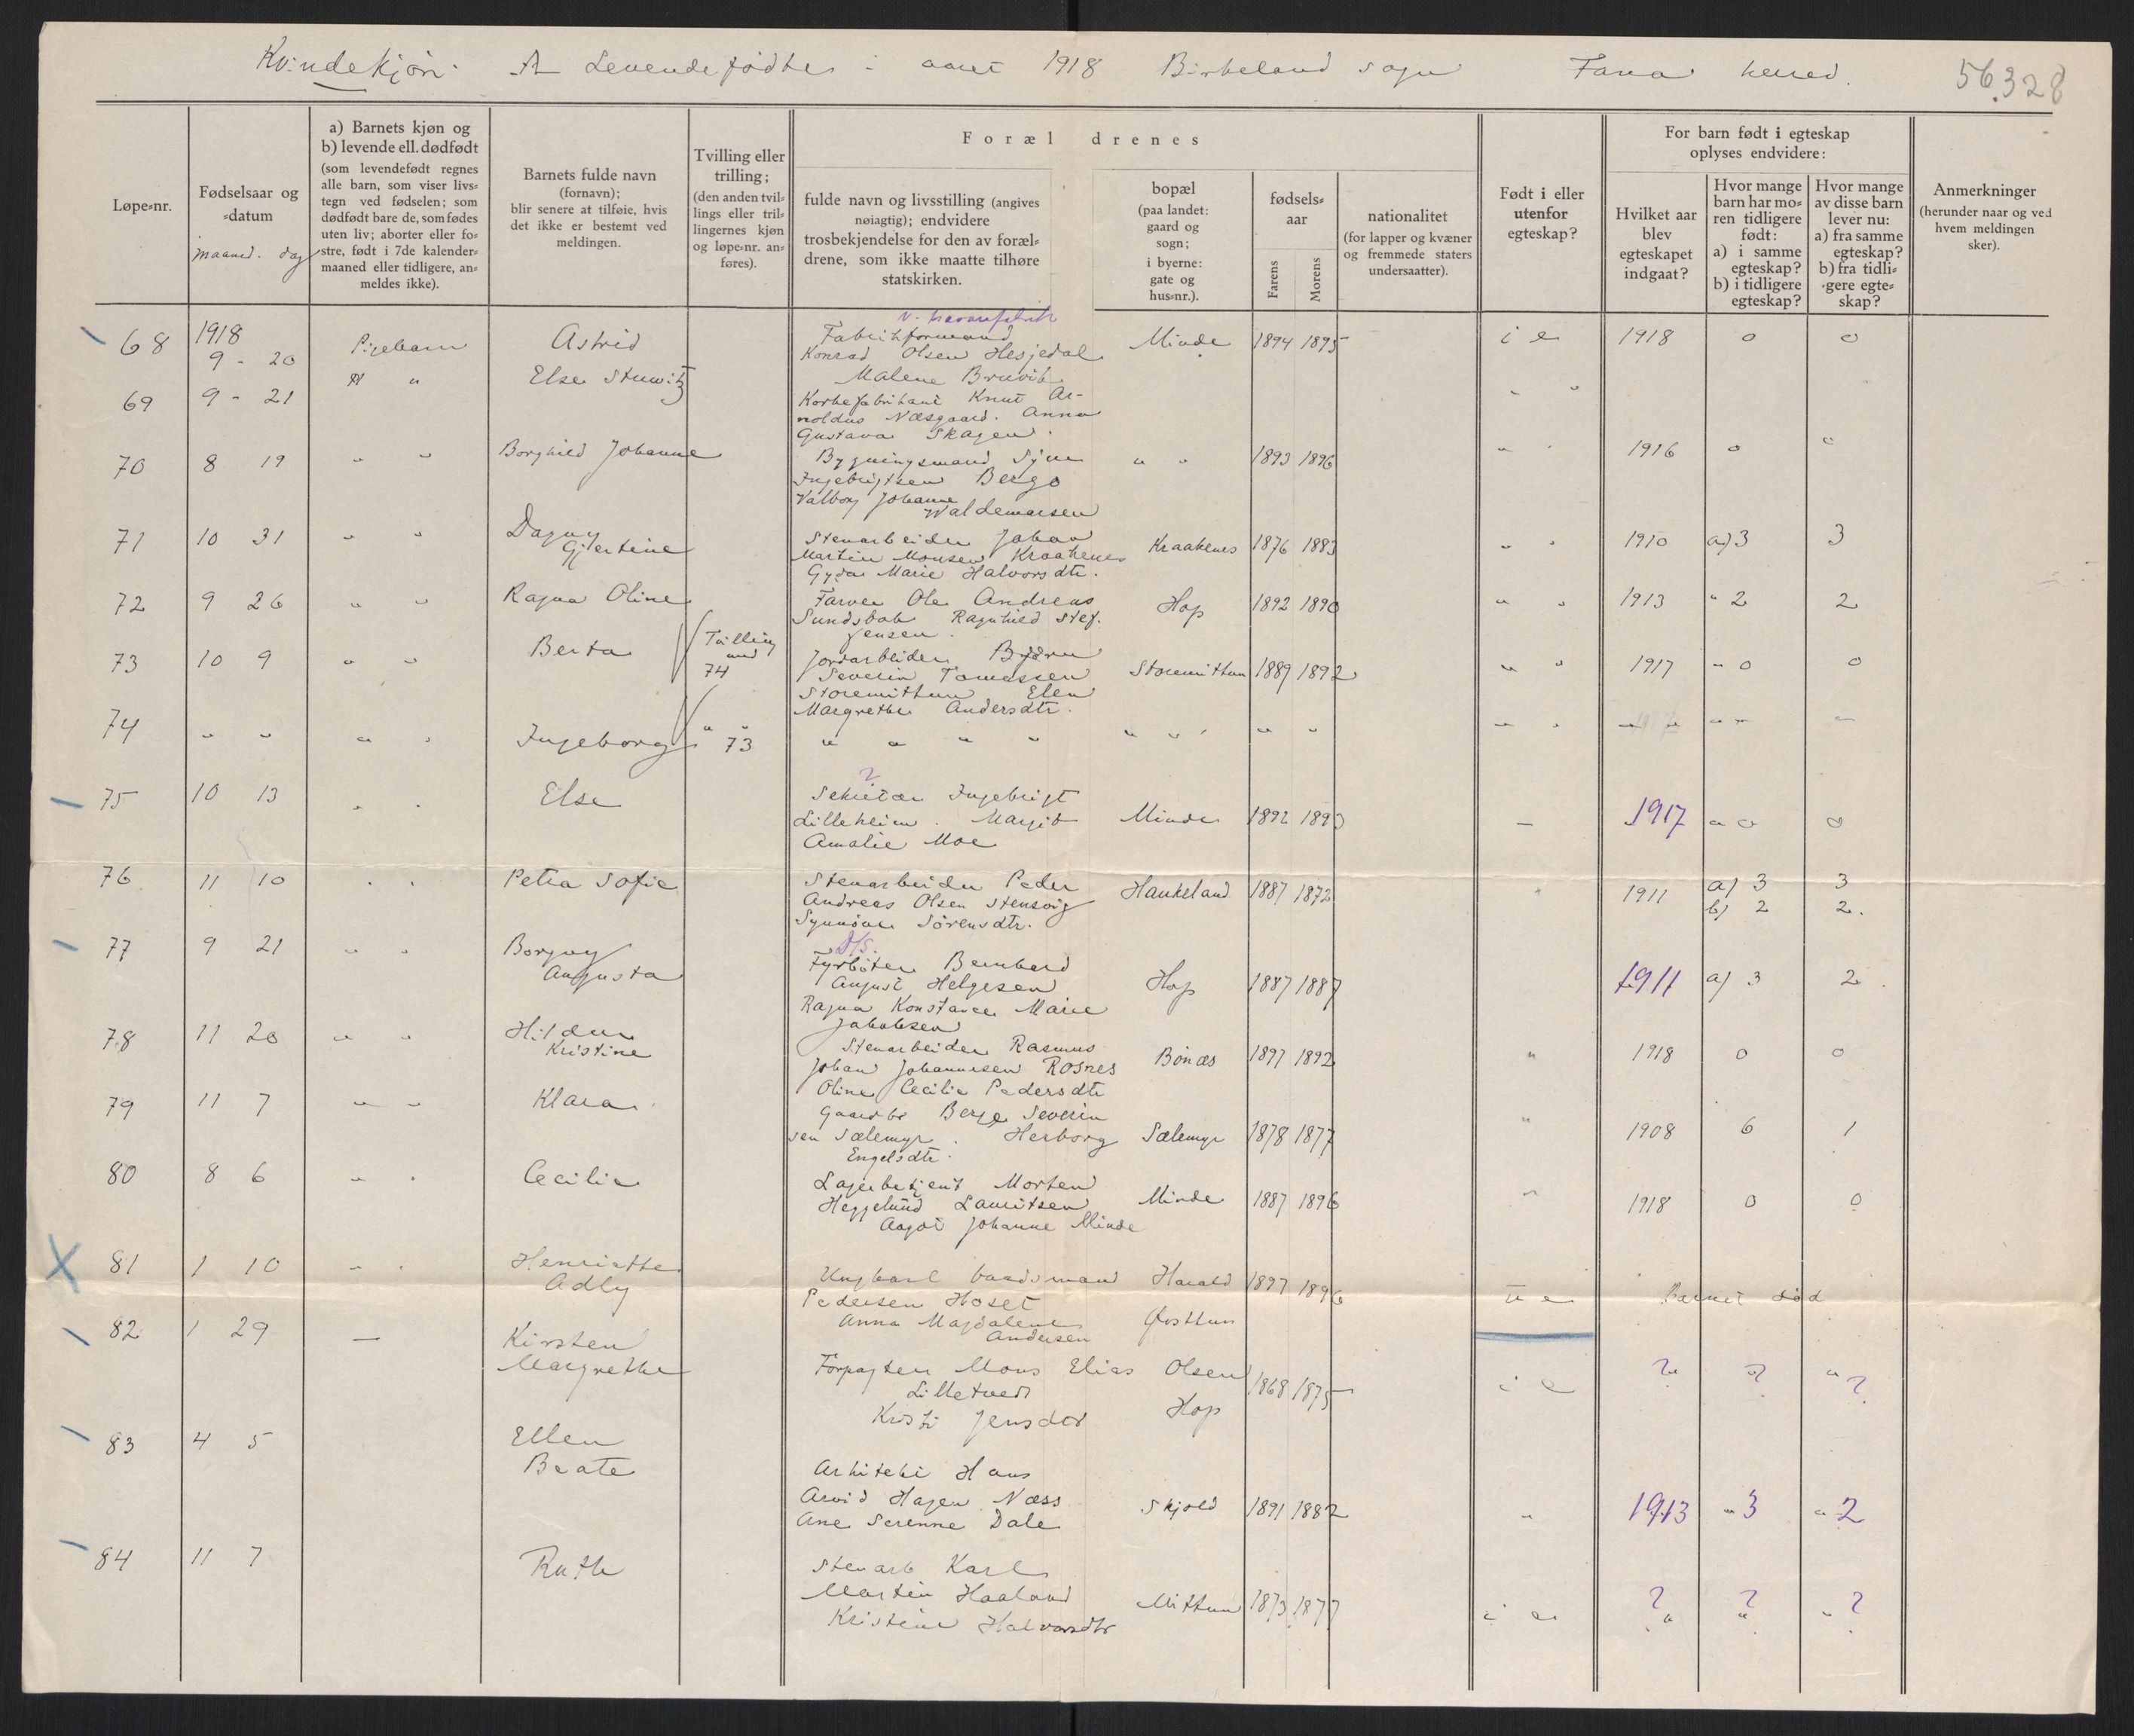 Kvindekjøn. A Levendefødte i aaret 1918 Birkeland sogn Fana herred. 56.328
Løpe-nr.
Fødselsaar og
-datum
maaned. dag
a) Barnets kjøn og
b) levende ell. dødfødt
(som levendefødt regnes
alle barn, som viser livs-
tegn ved fødselen; som
dødfødt bare de, som fødes
uten liv; aborter eller fo-
stre, født i 7de kalender-
maaned eller tidligere, an-
meldes ikke).
Barnets fulde navn
(fornavn);
blir senere at tilføie, hvis
det ikke er bestemt ved
meldingen.
Tvilling eller
trilling;
(den anden tvil-
lings eller tril-
lingernes kjøn
og løpe-nr. an-
føres).
Forældrenes
fulde navn og livsstilling (angives
nøiagtig); endvidere
trosbekjendelse for den av foræl-
drene, som ikke maatte tilhøre
statskirken.
bopæl
(paa landet:
gaard og
sogn;
i byerne:
gate og
hus-nr.).
fødsels-
aar
Farens
Morens
nationalitet
(for lapper og kvæner
og fremmede staters
undersaatter).
Født i eller
utenfor
egteskap?
For barn født i egteskap
oplyses endvidere:
Hvilket aar
blev
egteskapet
indgaat?
Hvor mange
barn har mo-
ren tidligere
født:
a) i samme
egteskap?
b) i tidligere
egteskap?
Hvor mange
av disse barn
lever nu:
a) fra samme
egteskap?
b) fra tidli-
gere egte-
skap?
Anmerkninger
(herunder naar og ved
hvem meldingen
sker).
68 1918 9 - 20 Pigebarn Astrid Fabrikformand
Konrad Olsen Hesjedal
Malene Bruvik Minde 1894 1895 i e 1918 0 0
69 9 - 21 " " Else Stuwitz Korkefabrikant Knut Ar-
noldus Næsgaard. Anna
Gustava Skagen. " "
70 8 19 " " Borghild Johanne Bygningsmand Sjur
Ingebrigtsen Bergo
Valborg Johanne
Waldemarsen " " 1893 1896 " " 1916 0 0
71 10 31 " " Dagny
Gjertine Stenarbeider Johan
Martin Monsen Kraakenes
Gyda Marie Halvorsdtr. Kraakenes 1876 1883 " " 1910 a) 3 3
72 9 26 " " Ragna Oline Farver Ole Andreas
Sundsbak Ragnhild Stef.
Jensen. Hop 1892 1890 " " 1913 " 2 2
73 10 9 " " Berta Tvilling
med
74 Jordarbeider Bjørn
Severin Tomassen
Storemittun Elen
Margrethe Andersdtr. Storemittun 1889 1892 " " 1917 " 0 0
74 " " " " Ingeborg " "
73 " " " " " " " " " " " " " " " "
75 10 13 " " Else ?
Sekretær Ingebrigt
Lilleheim. Margit
Amalie Moe Minde 1892 1893 — 1917 " 0 0
76 11 10 " " Petra Sofie Stenarbeider Peder
Andreas Olsen Stensvig
Synnøve Sørensdtr. Haukeland 1887 1872 " 1911 a) 3 3
b) 2 2.
77 9 21 " " Borgny
Augusta D/S.
Fyrbøter Bernhard
August Helgesen
Ragna Konstance Marie
Jakobsen Hop 1887 1887 1911 a) 3 2.
78 11 20 " " Hildur
Kristine Stenarbeider Rasmus
Johan Johannesen Rosnes
Oline Cecilie Pedersdtr Bønæs 1897 1892 " 1918 0 0
79 11 7 " " Klara Gaardbr Berge Severin
sen Sælemyr. Herborg
Engelsdtr. Sælemyr 1878 1877 " 1908 6 1
80 8 6 " " Cecilie Lagerbetjent Morten
Heggelund Lauritsen
Aagot Johanne Minde Minde 1887 1896 " 1918 0 0
81 1 10 " " Henriette
Adly Ungkarl baadsmand Harald
Pedersen Hoset
Anna Magdalene
Andersen Østtun 1897 1896 u e Barnet død
82 1 29 — Kirsten
Margrethe Forpagter Mons Elias Olsen
Lilletvedt
Kristi Jensdor Hop 1868 1875 i e ? ? " ?
83 4 5 Ellen
Beate Arkitekt Hans
Arvid Hagen Næss
Ane Serenne Dale Skjold 1891 1882 " 1913 " 3 " 2
84 11 7 Ruth Stenarb Karl
Martin Haaland
Kristine Halvorsdtr Mittun 1873 1877 i e ? ? " ?